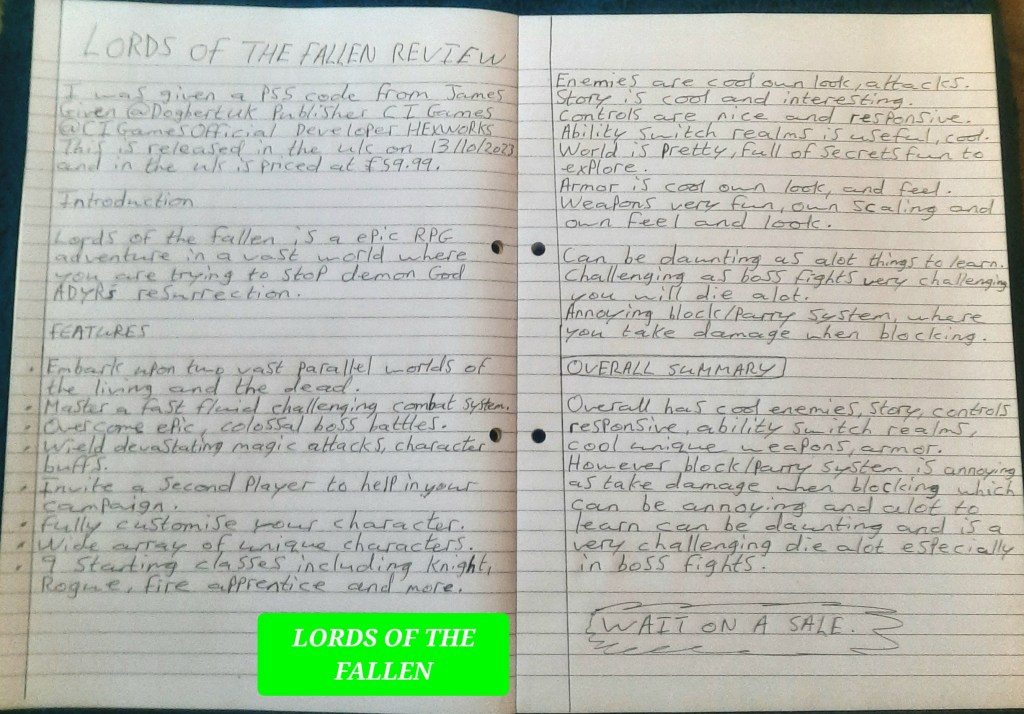 LORDS OF THE FALLEN REVIEW
I was given a PS5 code from James
Given @Dogbertuk Publisher CI Games
@CIGamesOfficial Developer HEXWORKS
This is released in the uk on 13/10/2023
and in the uk is priced at £59.99.
Introduction
Lords of the fallen is a epic RPG
adventure in a vast world where
you are trying to stop demon God
ADYRs resurrection.
FEATURES
• Embark upon two vast parallel worlds of
the living and the dead.
• Master a fast fluid challenging combat system.
• Overcome epic, colossal boss battles.
• Wield devastating magic attacks, character
buffs.
• Invite a second player to help in your
campaign.
• Fully customise your character.
• Wide array of unique characters.
• 9 Starting classes including Knight,
Rogue, fire apprentice and more.
Enemies are cool own look, attacks.
Story is cool and interesting.
Controls are nice and responsive.
Ability switch realms is useful, cool.
World is pretty, full of secrets fun to
explore.
Armor is cool own look, and feel.
Weapons very fun, own scaling and
own feel and look.
Can be daunting as alot things to learn.
Challenging as boss fights very challenging
you will die alot.
Annoying block/parry system, where
you take damage when blocking.
OVERALL SUMMARY
Overall has cool enemies, story, controls
responsive, ability switch realms,
cool unique weapons, armor.
However block/parry system is annoying
as take damage when blocking which
can be annoying and alot to
learn can be daunting and is a
very challenging die alot especially
in boss fights.
WAIT ON A SALE.
LORDS OF THE
FALLEN